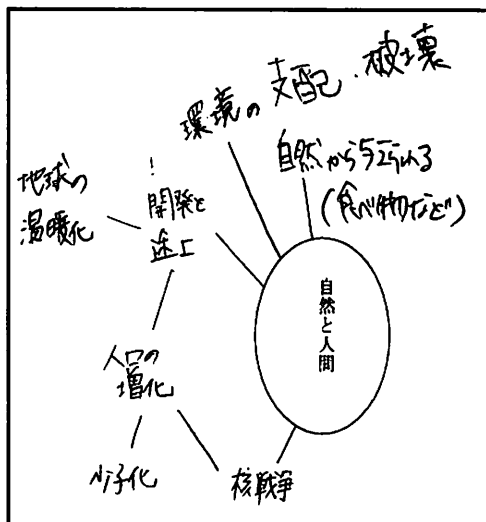 環境の支配・破壊
自然から与えられる
(食べ物など)
地球の
温暖化
開発と
途上
自然と人間
人口の
増化
少子化
核戦争